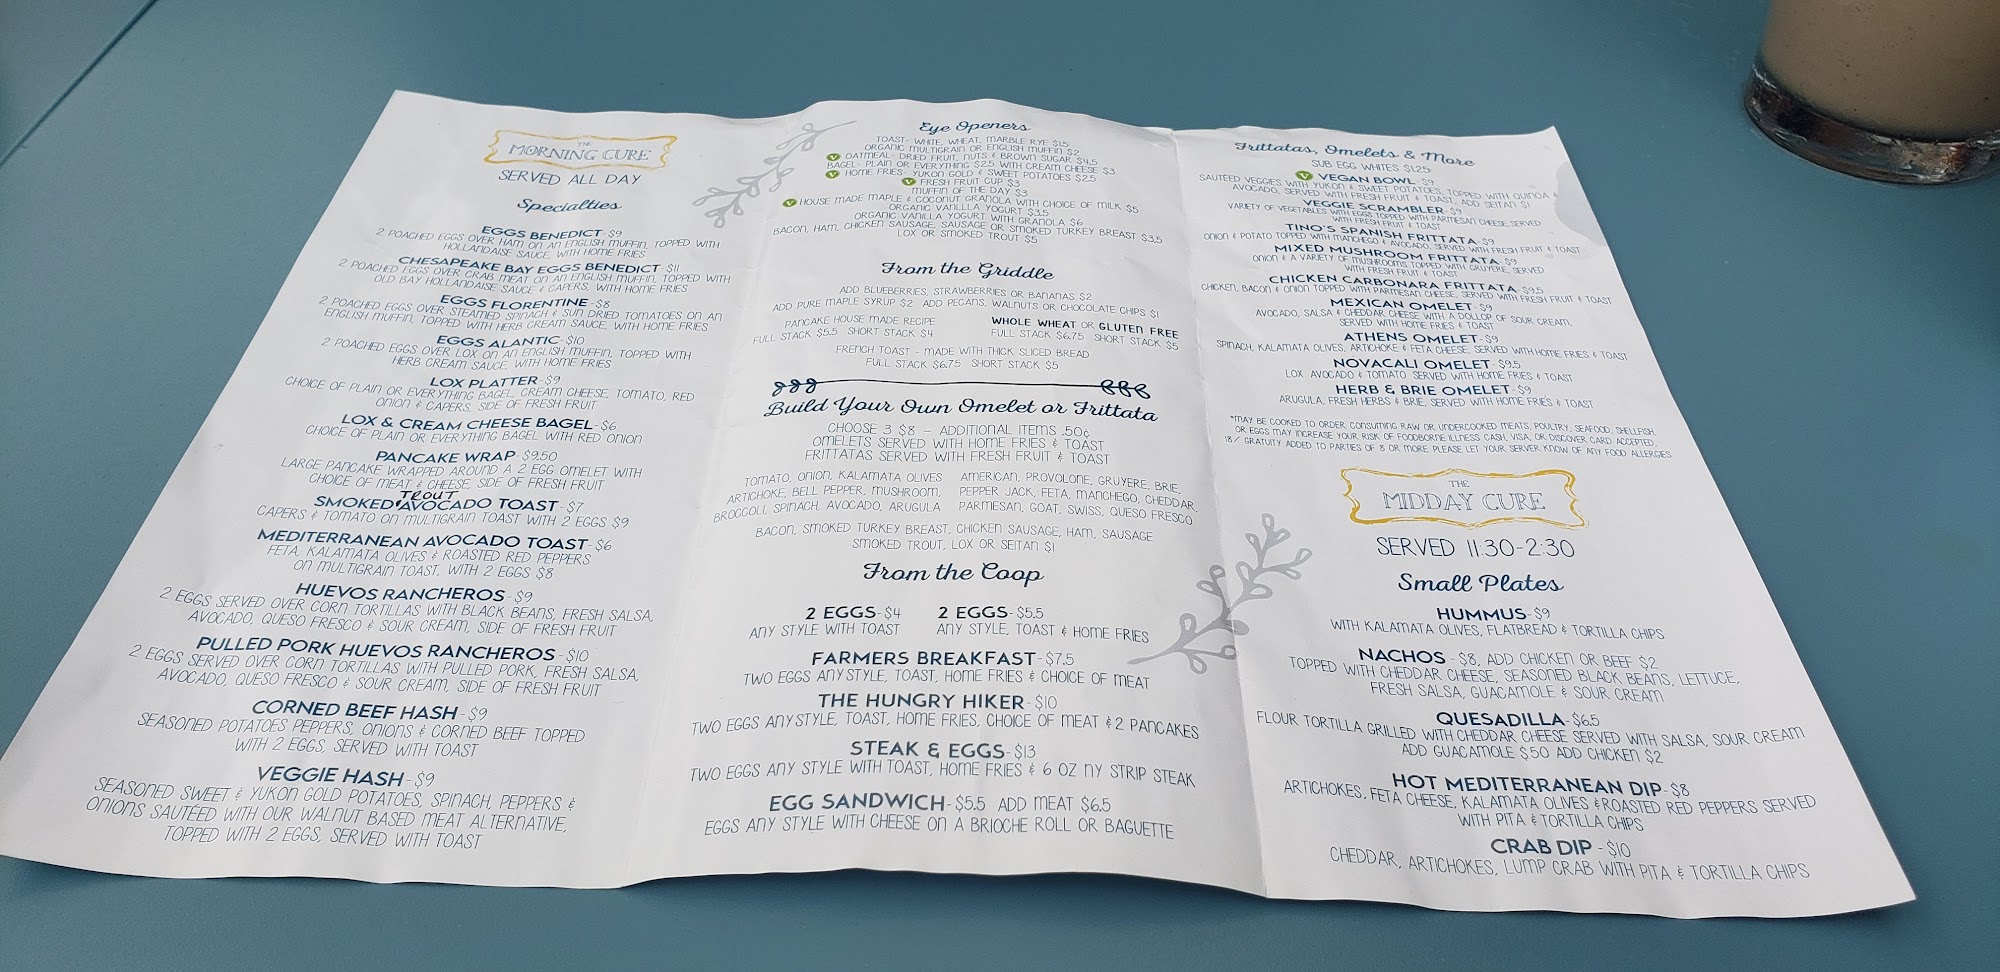 THE
MORNING CURE
SERVED ALL DAY
Specialties
EGGS BENEDICT- $9
2 POACHED EGGS OVER HAM ON AN ENGLISH MUFFIN, TOPPED WITH
HOLLANDAISE SAUCE, WITH HOME FRIES
CHESAPEAKE BAY EGGS BENEDICT- $11
2 POACHED EGGS OVER CRAB MEAT ON AN ENGLISH MUFFIN, TOPPED WITH
OLD BAY HOLLANDAISE SAUCE & CAPERS, WITH HOME FRIES
EGGS FLORENTINE- $8
2 POACHED EGGS OVER STEAMED SPINACH & SUN DRIED TOMATOES ON AN
ENGLISH MUFFIN, TOPPED WITH HERB CREAM SAUCE, WITH HOME FRIES
EGGS ALANTIC- $10
2 POACHED EGGS OVER LOX ON AN ENGLISH MUFFIN, TOPPED WITH
HERB CREAM SAUCE, WITH HOME FRIES
LOX PLATTER- $9
CHOICE OF PLAIN OR EVERYTHING BAGEL, CREAM CHEESE, TOMATO, RED
ONION & CAPERS, SIDE OF FRESH FRUIT
LOX & CREAM CHEESE BAGEL- $6
CHOICE OF PLAIN OR EVERYTHING BAGEL WITH RED ONION
PANCAKE WRAP- $9.50
LARGE PANCAKE WRAPPED AROUND A 2 EGG OMELET WITH
CHOICE OF MEAT & CHEESE, SIDE OF FRESH FRUIT
TROUT
SMOKED AVOCADO TOAST- $7
CAPERS & TOMATO ON MULTIGRAIN TOAST WITH 2 EGGS $9
MEDITERRANEAN AVOCADO TOAST- $6
FETA, KALAMATA OLIVES & ROASTED RED PEPPERS
ON MULTIGRAIN TOAST, WITH 2 EGGS $8
HUEVOS RANCHEROS- $9
2 EGGS SERVED OVER CORN TORTILLAS WITH BLACK BEANS, FRESH SALSA,
AVOCADO, QUESO FRESCO & SOUR CREAM, SIDE OF FRESH FRUIT
PULLED PORK HUEVOS RANCHEROS- $10
2 EGGS SERVED OVER CORN TORTILLAS WITH PULLED PORK, FRESH SALSA,
AVOCADO, QUESO FRESCO & SOUR CREAM, SIDE OF FRESH FRUIT
CORNED BEEF HASH- $9
SEASONED POTATOES PEPPERS, ONIONS & CORNED BEEF TOPPED
WITH 2 EGGS, SERVED WITH TOAST
VEGGIE HASH- $9
SEASONED SWEET & YUKON GOLD POTATOES, SPINACH, PEPPERS &
ONIONS SAUTÉED WITH OUR WALNUT BASED MEAT ALTERNATIVE,
TOPPED WITH 2 EGGS, SERVED WITH TOAST
Eye Openers
TOAST- WHITE, WHEAT, MARBLE RYE $1.5
ORGANIC MULTIGRAIN OR ENGLISH MUFFIN $2
V OATMEAL- DRIED FRUIT, NUTS & BROWN SUGAR $4.5
BAGEL- PLAIN OR EVERYTHING $2.5 WITH CREAM CHEESE $3
V HOME FRIES- YUKON GOLD & SWEET POTATOES $2.5
V FRESH FRUIT CUP $3
MUFFIN OF THE DAY $3
V HOUSE MADE MAPLE & COCONUT GRANOLA WITH CHOICE OF MILK $5
ORGANIC VANILLA YOGURT $3.5
ORGANIC VANILLA YOGURT WITH GRANOLA $6
BACON, HAM, CHICKEN SAUSAGE, SAUSAGE OR SMOKED TURKEY BREAST $3.5
LOX OR SMOKED TROUT $5
From the Griddle
ADD BLUEBERRIES, STRAWBERRIES OR BANANAS $2
ADD PURE MAPLE SYRUP $2 ADD PECANS, WALNUTS OR CHOCOLATE CHIPS $1
PANCAKE HOUSE MADE RECIPE
FULL STACK $5.5 SHORT STACK $4
WHOLE WHEAT OR GLUTEN FREE
FULL STACK $6.75 SHORT STACK $5
FRENCH TOAST - MADE WITH THICK SLICED BREAD
FULL STACK $6.75 SHORT STACK $5
Build Your Own Omelet or Frittata
CHOOSE 3 $8 - ADDITIONAL ITEMS .50¢
OMELETS SERVED WITH HOME FRIES & TOAST
FRITTATAS SERVED WITH FRESH FRUIT & TOAST
TOMATO, ONION, KALAMATA OLIVES
ARTICHOKE, BELL PEPPER, MUSHROOM,
BROCCOLI, SPINACH, AVOCADO, ARUGULA
AMERICAN, PROVOLONE, GRUYERE, BRIE,
PEPPER JACK, FETA, MANCHEGO, CHEDDAR,
PARMESAN, GOAT, SWISS, QUESO FRESCO
BACON, SMOKED TURKEY BREAST, CHICKEN SAUSAGE, HAM, SAUSAGE
SMOKED TROUT, LOX OR SEITAN $1
From the Coop
2 EGGS- $4
ANY STYLE WITH TOAST
2 EGGS- $5.5
ANY STYLE, TOAST & HOME FRIES
FARMERS BREAKFAST- $7.5
TWO EGGS ANY STYLE, TOAST, HOME FRIES & CHOICE OF MEAT
THE HUNGRY HIKER- $10
TWO EGGS ANY STYLE, TOAST, HOME FRIES, CHOICE OF MEAT & 2 PANCAKES
STEAK & EGGS- $13
TWO EGGS ANY STYLE WITH TOAST, HOME FRIES & 6 OZ NY STRIP STEAK
EGG SANDWICH- $5.5 ADD MEAT $6.5
EGGS ANY STYLE WITH CHEESE ON A BRIOCHE ROLL OR BAGUETTE
Frittatas, Omelets & More
SUB EGG WHITES $1.25
V VEGAN BOWL- $9
SAUTÉED VEGGIES WITH YUKON & SWEET POTATOES, TOPPED WITH QUINOA &
AVOCADO, SERVED WITH FRESH FRUIT & TOAST, ADD SEITAN $1
VEGGIE SCRAMBLER- $9
VARIETY OF VEGETABLES WITH EGGS TOPPED WITH PARMESAN CHEESE, SERVED
WITH FRESH FRUIT & TOAST
TINO'S SPANISH FRITTATA- $9
ONION & POTATO TOPPED WITH MANCHEGO & AVOCADO, SERVED WITH FRESH FRUIT & TOAST
MIXED MUSHROOM FRITTATA- $9
ONION & A VARIETY OF MUSHROOMS TOPPED WITH GRUYERE, SERVED
WITH FRESH FRUIT & TOAST
CHICKEN CARBONARA FRITTATA- $9.5
CHICKEN, BACON & ONION TOPPED WITH PARMESAN CHEESE, SERVED WITH FRESH FRUIT & TOAST
MEXICAN OMELET- $9
AVOCADO, SALSA & CHEDDAR CHEESE WITH A DOLLOP OF SOUR CREAM,
SERVED WITH HOME FRIES & TOAST
ATHENS OMELET- $9
SPINACH, KALAMATA OLIVES, ARTICHOKE & FETA CHEESE, SERVED WITH HOME FRIES & TOAST
NOVACALI OMELET- $9.5
LOX AVOCADO & TOMATO SERVED WITH HOME FRIES & TOAST
HERB & BRIE OMELET- $9
ARUGULA, FRESH HERBS & BRIE, SERVED WITH HOME FRIES & TOAST
*MAY BE COOKED TO ORDER. CONSUMING RAW OR UNDERCOOKED MEATS, POULTRY, SEAFOOD, SHELLFISH,
OR EGGS MAY INCREASE YOUR RISK OF FOODBORNE ILLNESS. CASH, VISA, OR DISCOVER CARD ACCEPTED.
18% GRATUITY ADDED TO PARTIES OF 8 OR MORE PLEASE LET YOUR SERVER KNOW OF ANY FOOD ALLERGIES
THE
MIDDAY CURE
SERVED 11:30-2:30
Small Plates
HUMMUS- $9
WITH KALAMATA OLIVES, FLATBREAD & TORTILLA CHIPS
NACHOS - $8, ADD CHICKEN OR BEEF $2
TOPPED WITH CHEDDAR CHEESE, SEASONED BLACK BEANS, LETTUCE,
FRESH SALSA, GUACAMOLE & SOUR CREAM
QUESADILLA- $6.5
FLOUR TORTILLA GRILLED WITH CHEDDAR CHEESE SERVED WITH SALSA, SOUR CREAM
ADD GUACAMOLE $.50 ADD CHICKEN $2
HOT MEDITERRANEAN DIP- $8
ARTICHOKES, FETA CHEESE, KALAMATA OLIVES & ROASTED RED PEPPERS SERVED
WITH PITA & TORTILLA CHIPS
CRAB DIP - $10
CHEDDAR, ARTICHOKES, LUMP CRAB WITH PITA & TORTILLA CHIPS